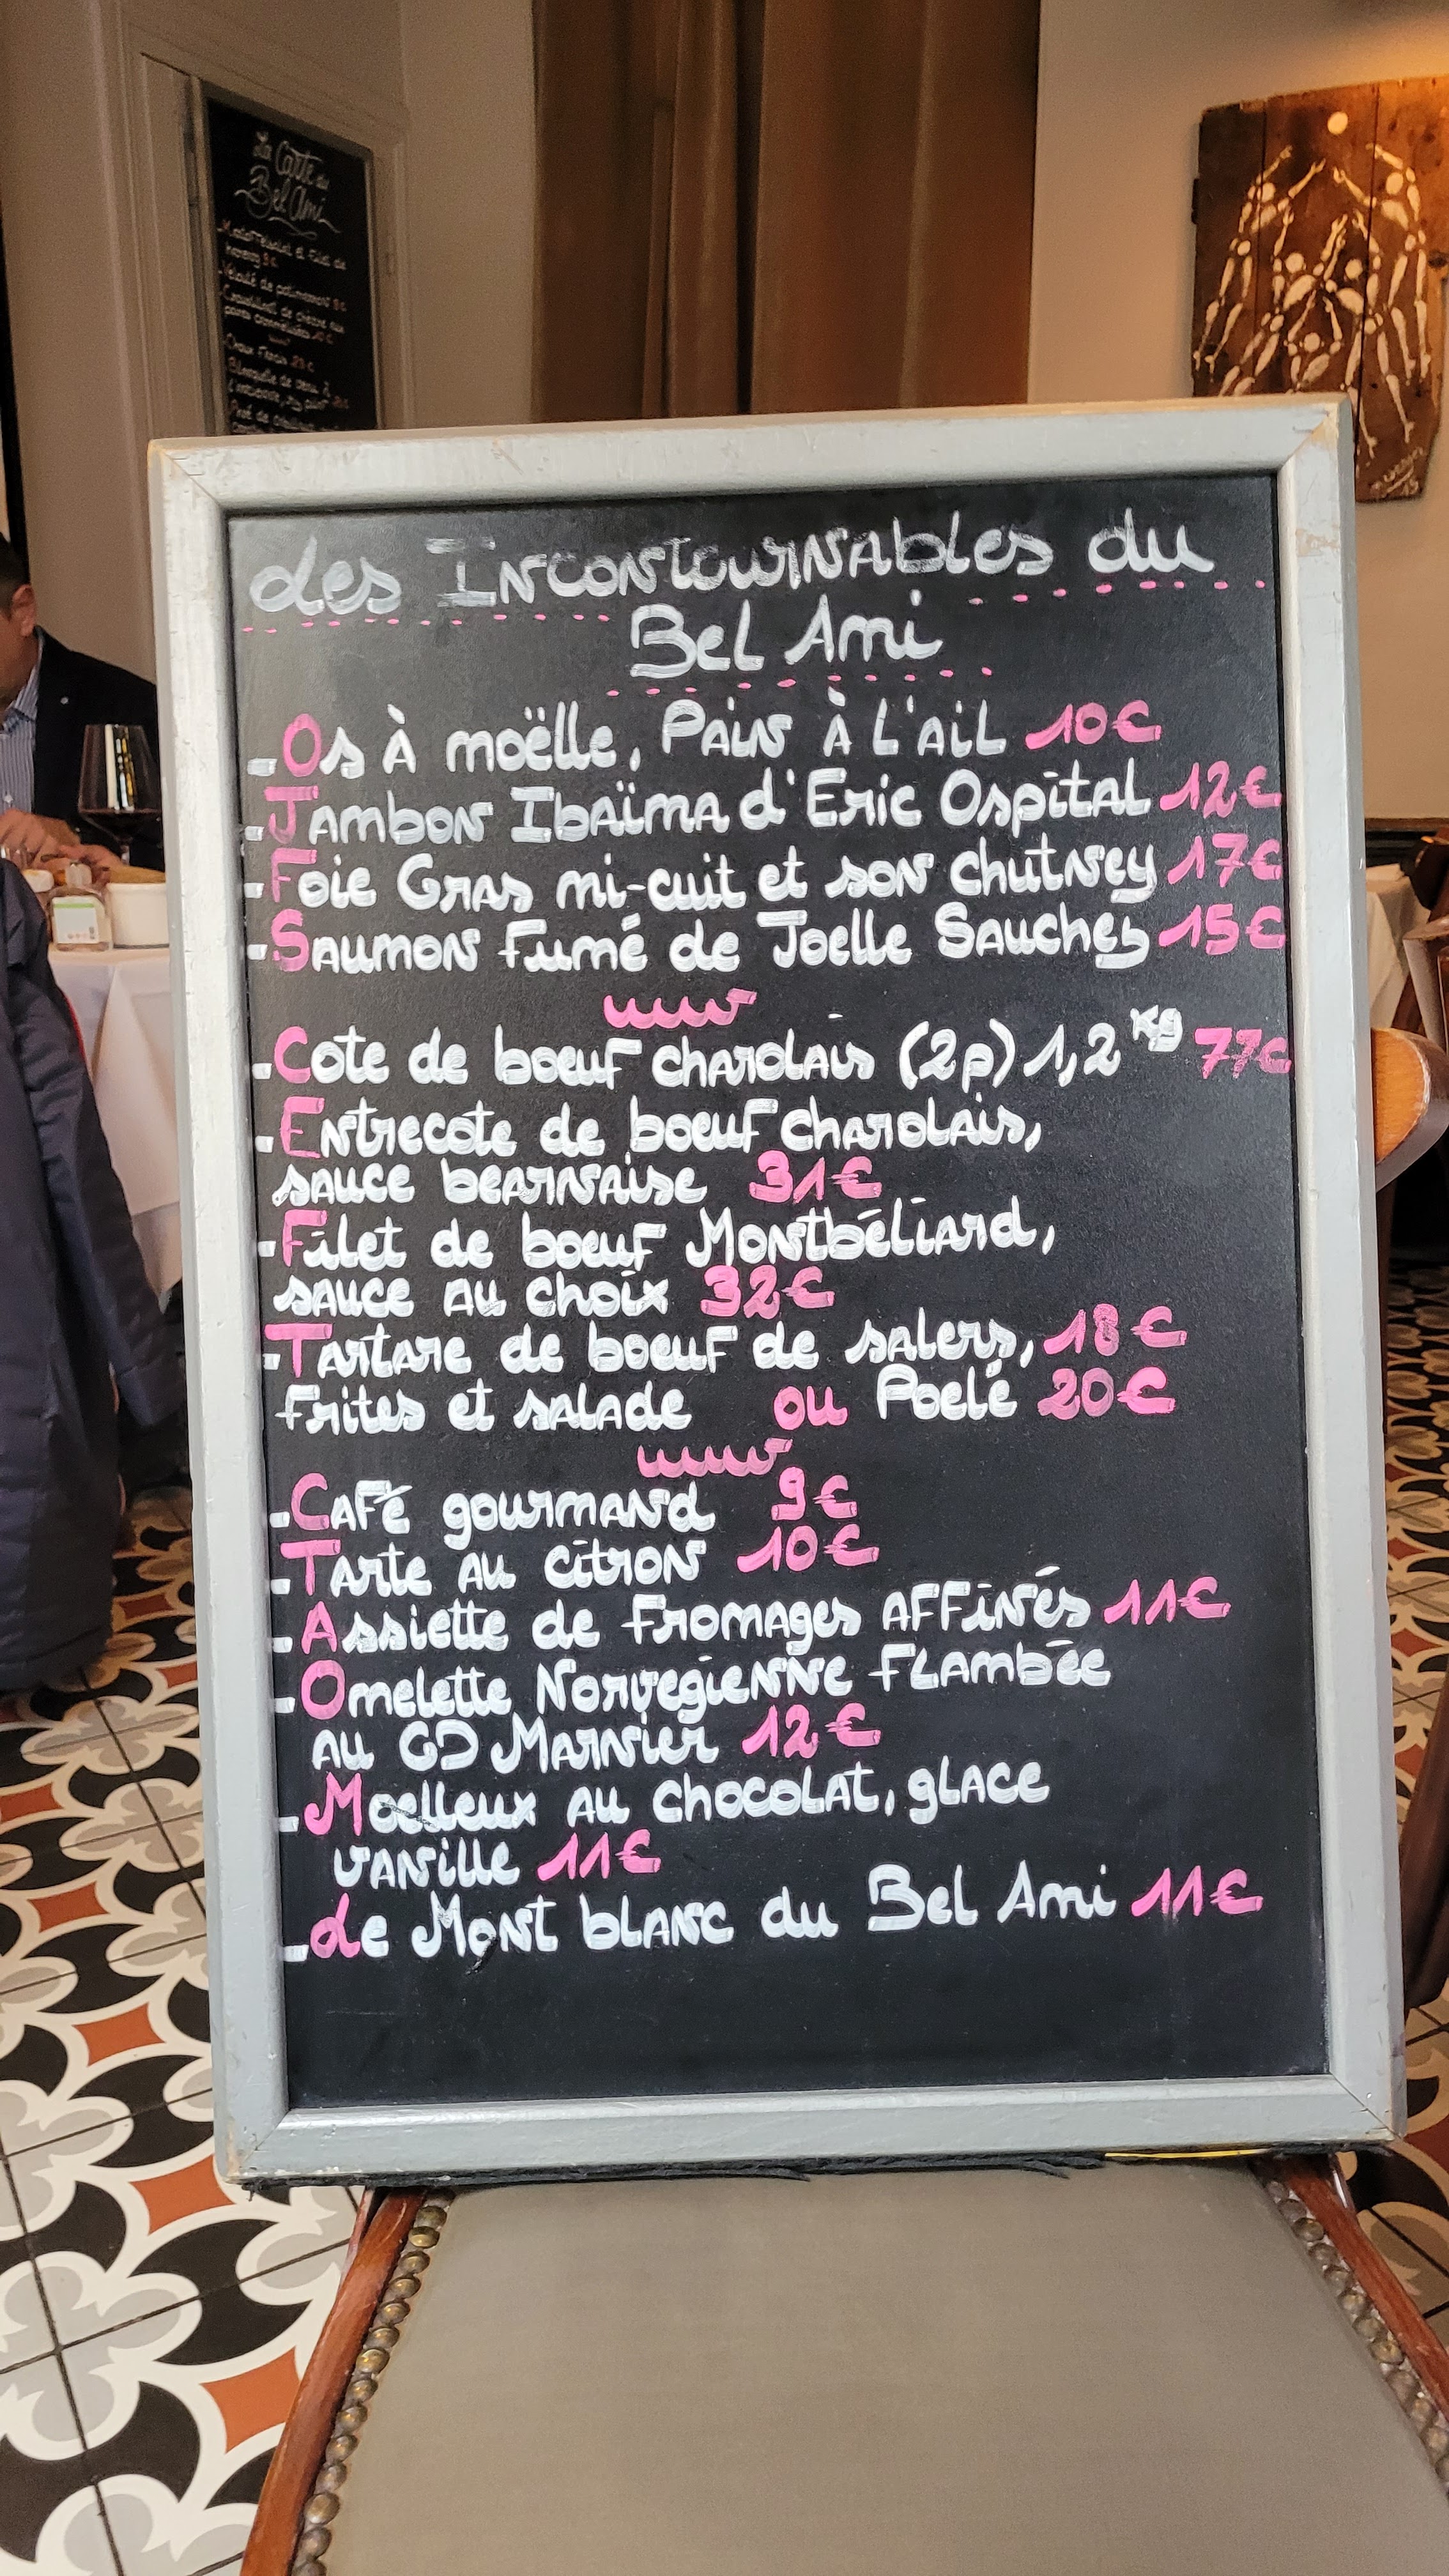 La Carte du
Bel Ami
Velouté de potimarron 9€
Blanquette de veau à
l'ancienne, riz pilaf
Les Incontournables du
Bel Ami
- Os à moëlle, Pain à l'ail 10€
- Jambon Ibaïma d'Eric Ospital 12€
- Foie Gras mi-cuit et son chutney 17€
- Saumon fumé de Joelle Sauches 15€
- Cote de boeuf charolais (2p) 1,2 kg 77€
- Entrecote de boeuf charolais,
sauce bearnaise 31€
- Filet de boeuf Montbéliard,
sauce au choix 32€
- Tartare de boeuf de salers, 18€
frites et salade ou Poelé 20€
- Café gourmand 9€
- Tarte au citron 10€
- Assiette de fromages affinés 11€
- Omelette Norvegienne flambée
au GD Marnier 12€
- Moelleux au chocolat, glace
vanille 11€
- Le Mont blanc du Bel Ami 11€